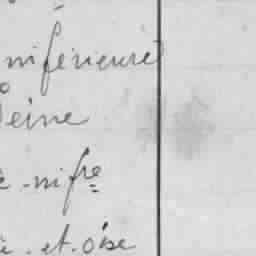 inférieure
Seine
e -infre
e - et - Oise